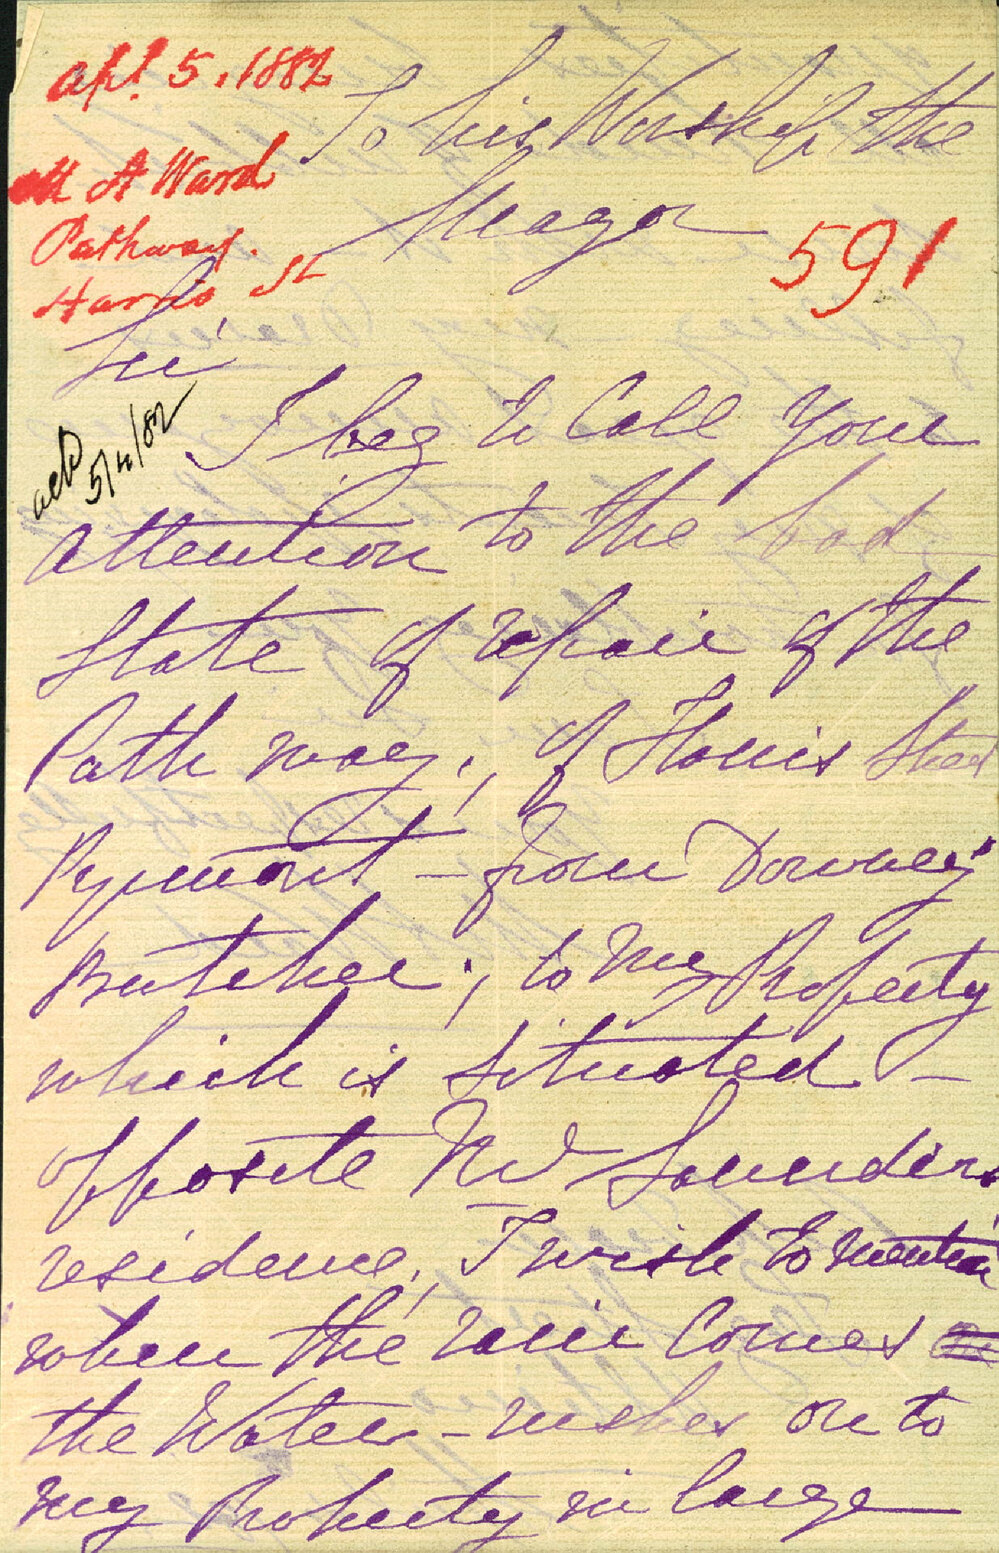 Apl. 5. 1882
M A Ward
Pathway.
Harris St
591
ackd
5/4/82
To his Worship the
Mayor
Sir
I beg to Call your
attention to the bad
State of repair of the
Path way; of Harris Street
Pyrmont - from Downey's
Butcher; to my Property
which is situated -
opposite Mr Saunders
residence; I wish to mention
when the rain Comes
the Water - rushes on to
my Property in large